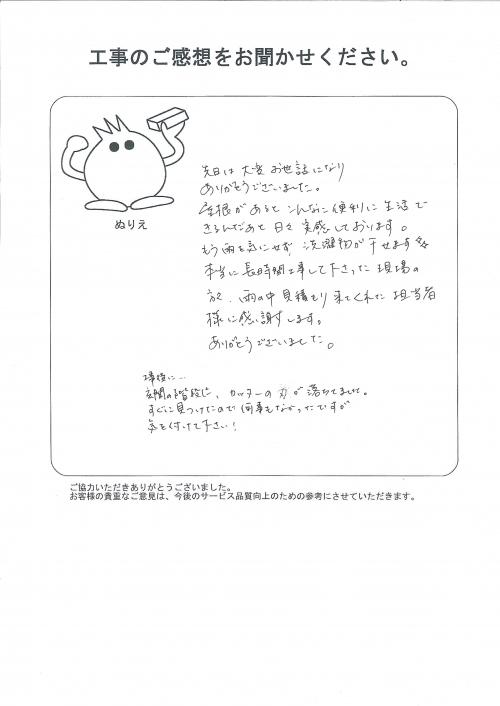 工事のご感想をお聞かせください。
ぬりえ
先日は大変お世話になり
ありがとうございました。
屋根があるとこんなに便利に生活で
きるんだあと日々実感しております。
もう雨を気にせず洗濯物が干せます☆
本当に長時間工事して下さった現場の
方々、雨の中見積もり来てくれた担当者
様に感謝します。
ありがとうございました。
工事後に…
玄関の階段に、カッターの刃が落ちてました。
すぐに見つけたので何事もなかったですが
気を付けて下さい！
ご協力いただきありがとうございました。
お客様の貴重なご意見は、今後のサービス品質向上のための参考にさせていただきます。